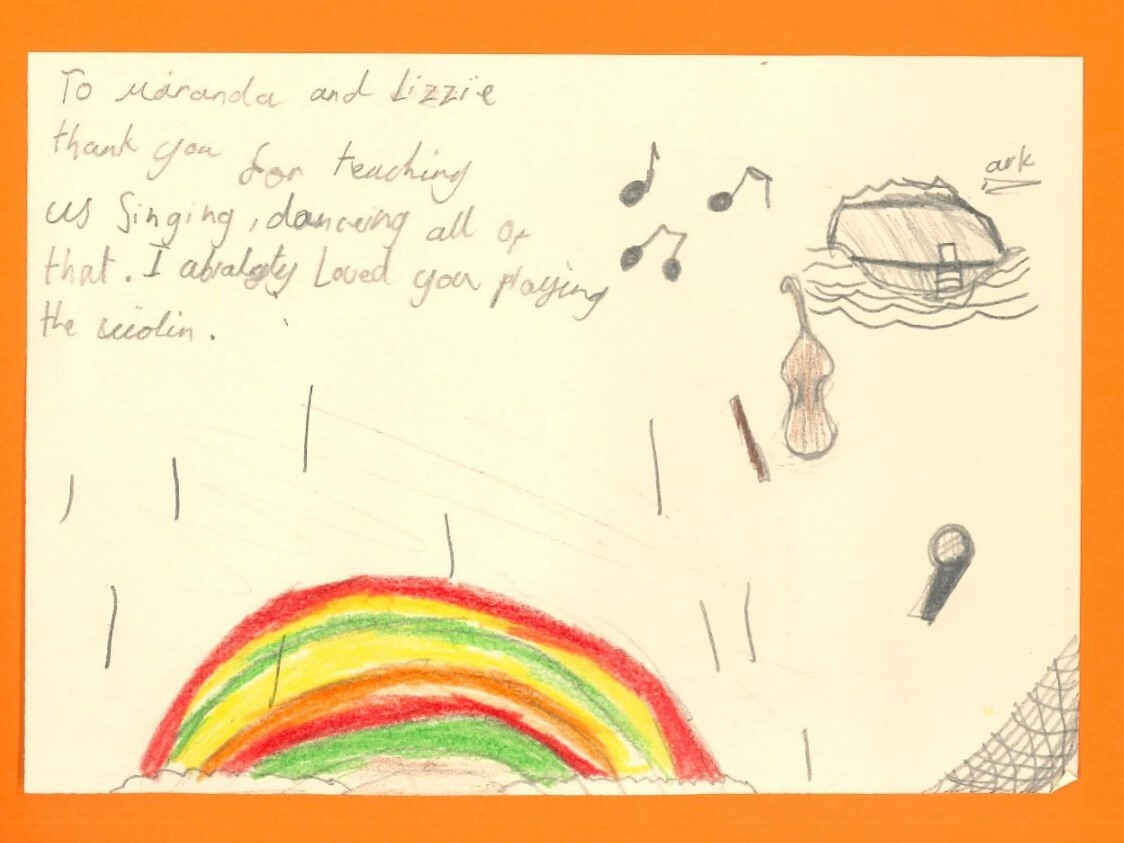 To Maranda and Lizzie
thank you for teaching
us Singing, dancing all of
that. I abralgty Loved you playing
the violin.
ark